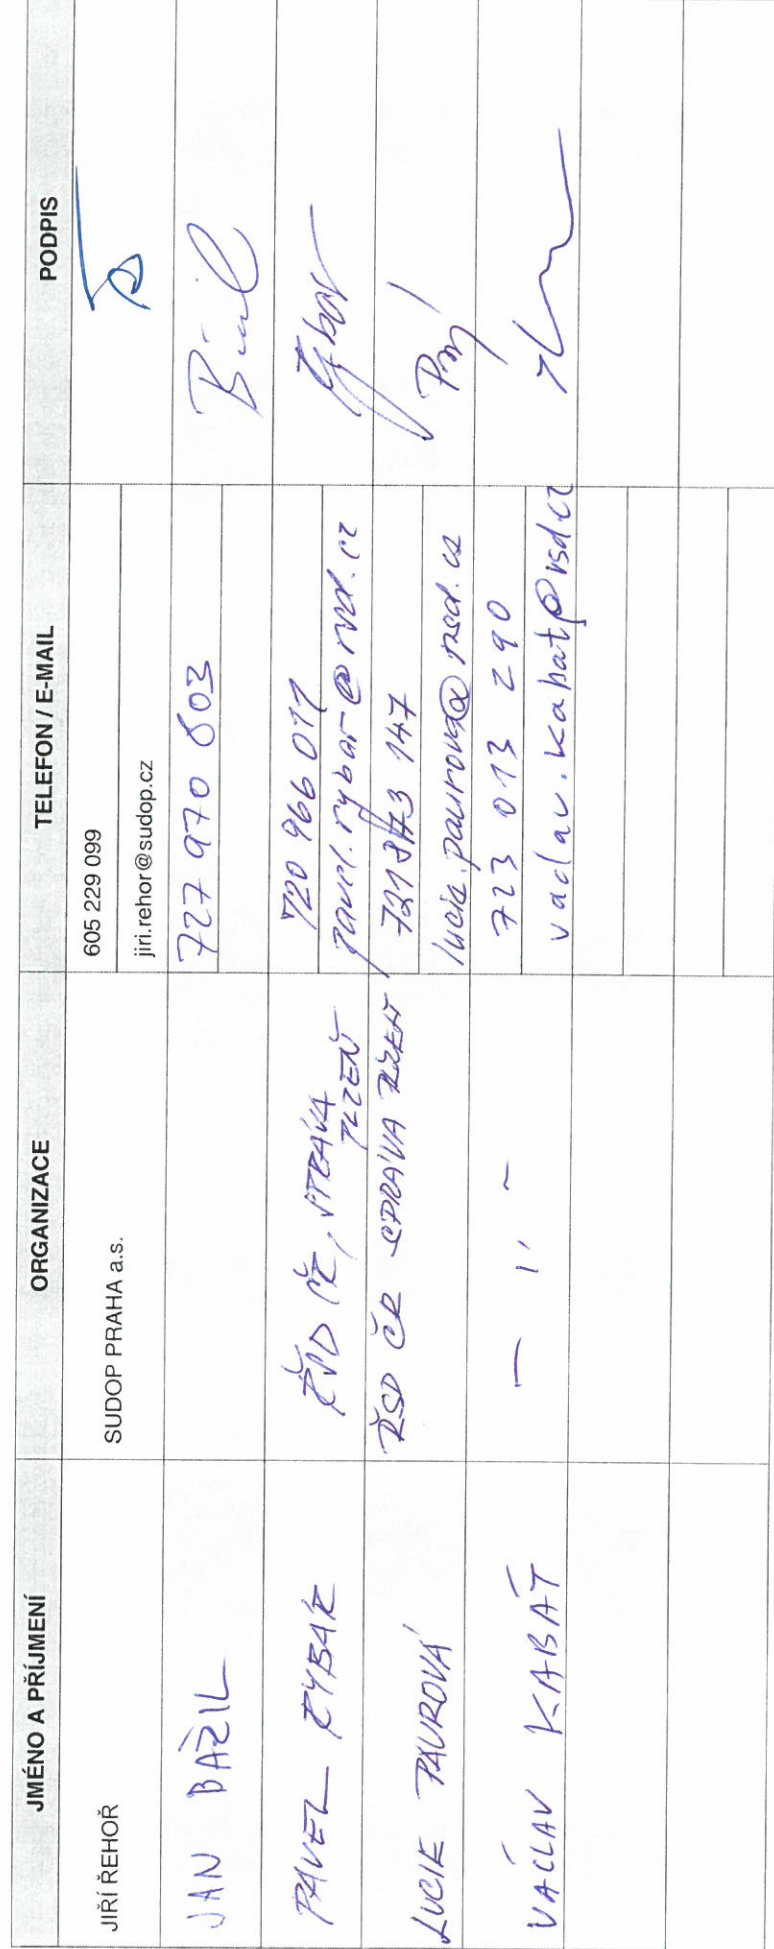 JMÉNO A PŘÍJMENÍ ORGANIZACE TELEFON / E-MAIL PODPIS
JIŘÍ ŘEHOŘ SUDOP PRAHA a.s. 605 229 099
jiri.rehor@sudop.cz
JAN BAŽIL 727 970 803
PAVEL RYBÁŘ ŘSD ČR, SPRÁVA PLZEŇ 720 966 011
pavel.rybar@rsd.cz
LUCIE PAUROVÁ ŘSD ČR SPRÁVA PLZEŇ
lucie.paurova@rsd.cz
VÁCLAV KABÁT — 1, — 723 013 290
vaclav.kabat@rsd.cz